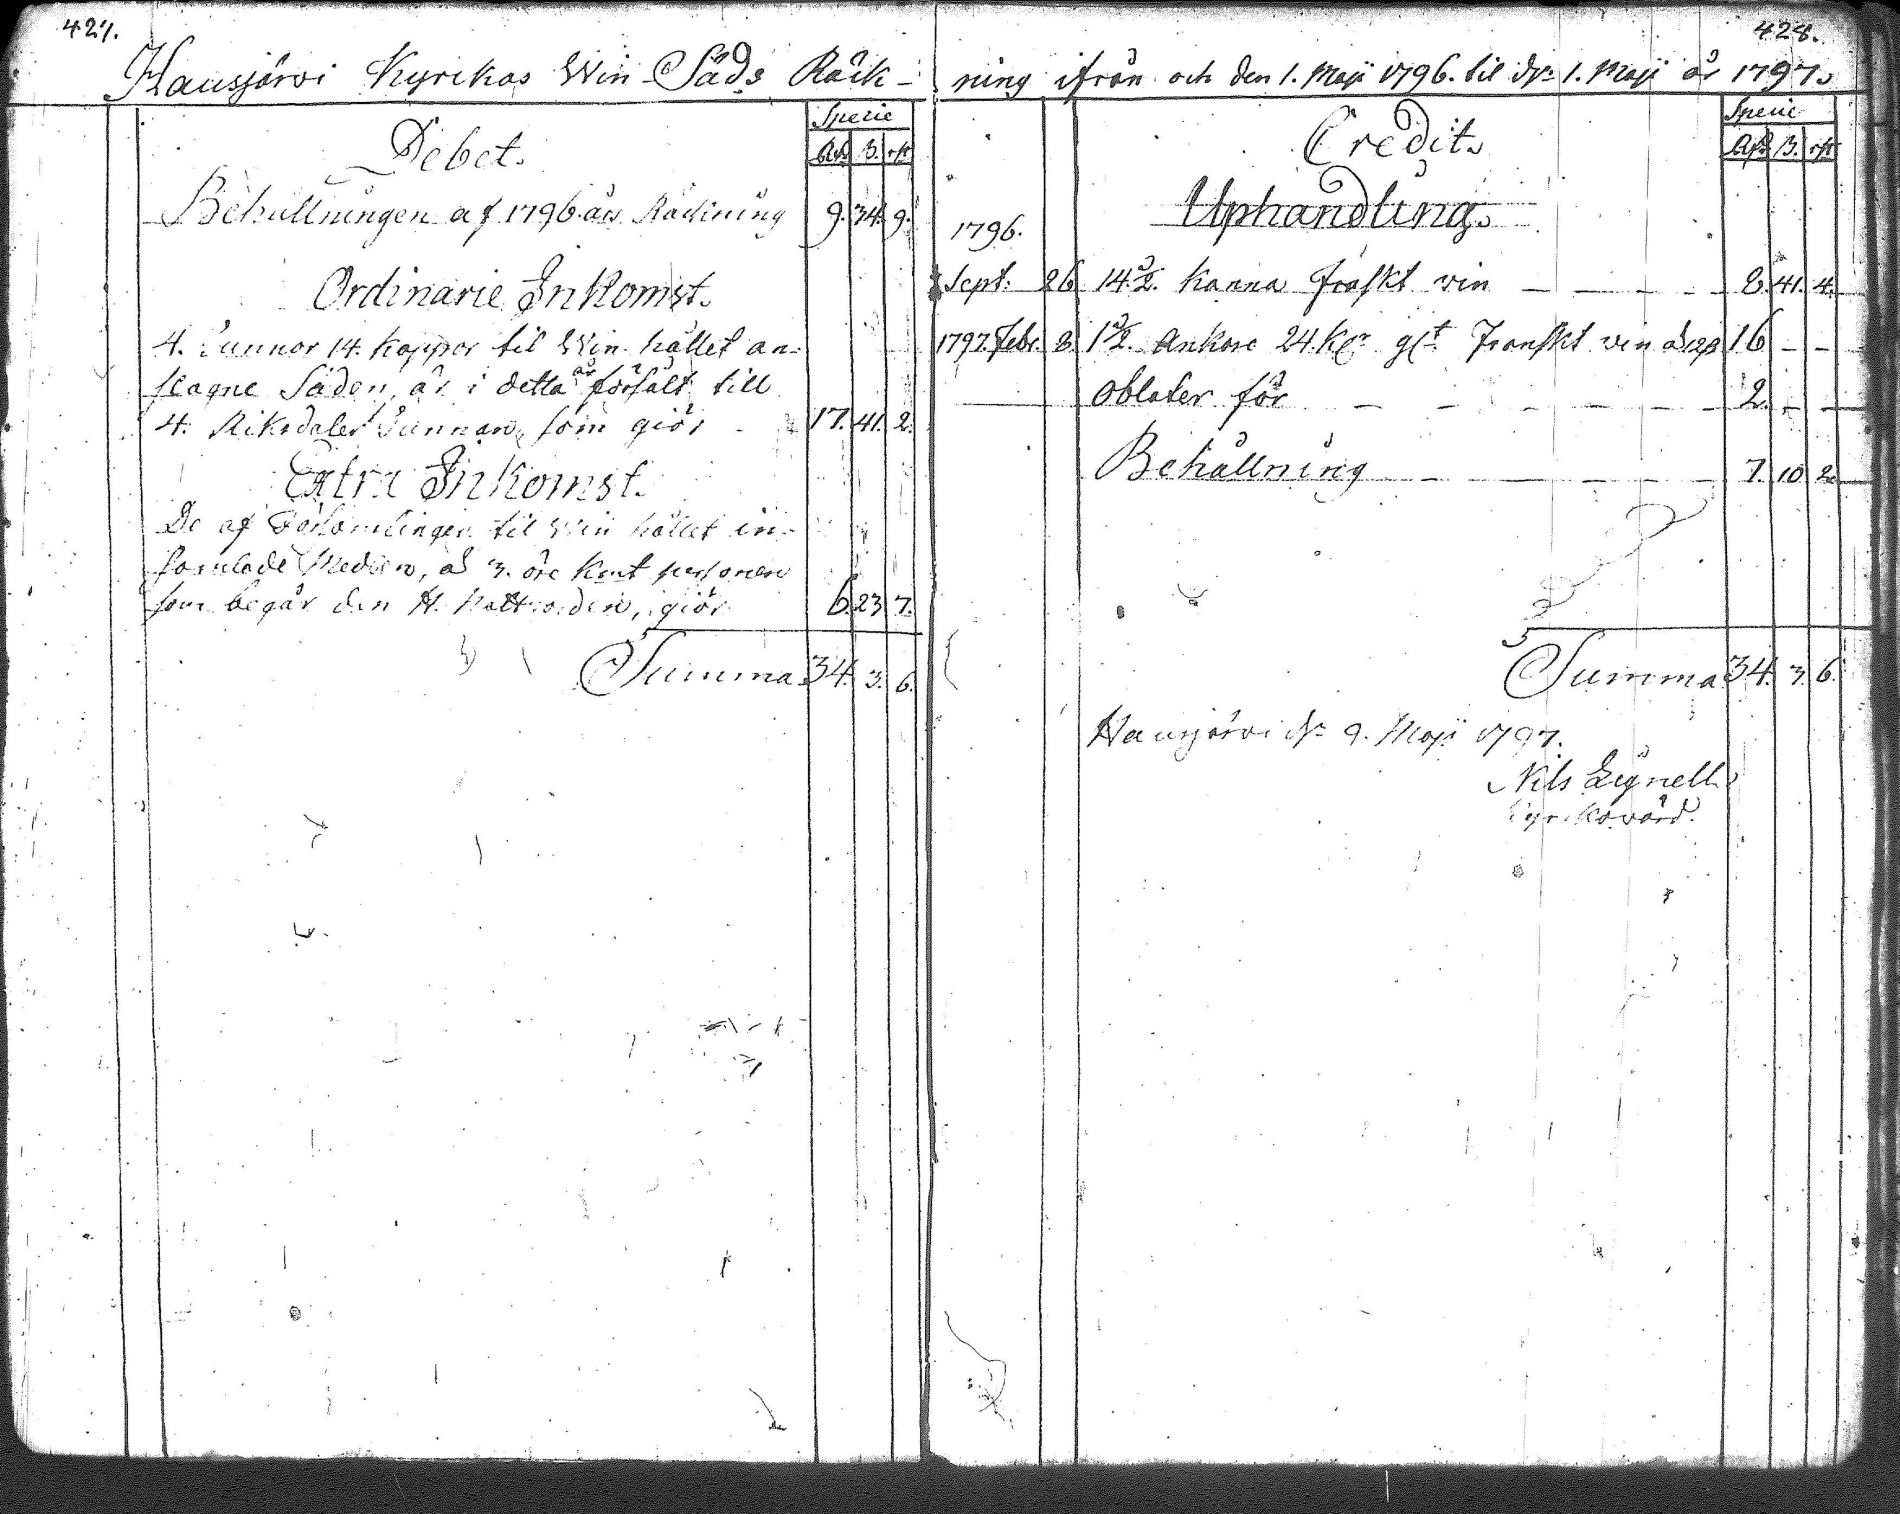 427.
Hausjärvi Kyrckas Win-Säds Räck-
Debet.
Specie
Rdr ß. rst
Behållningen af 1796 års Räckning 9. 34. 9.
Ordinarie Inkomst.
4. Tunnor 14. kappar til Win hållet an-
slagne Säden, är i detta år försålt till
4. Riksdaler Tunnan, som giör - 17. 41. 2.
Extra Inkomst.
De af Församlingen til Win hållet in-
samlade Medlen, a 3. öre kmt personen
som begår den H. Nattvarden, giör 6. 23 7.
Summa 34. 3. 6.
428.
ning ifrån och den 1. Maji 1796. til dn 1. Maji år 1797.
Credit.
Specie
Rdr ß. rst
Uphandling.
1796.
Sept: 26 14.½. kanna Franskt vin - - - - - 8. 41. 4.
1797. Febr. 8. 1½. Ankare Franskt vin 16 - -
Oblater för - - - - - - 2. - -
Behållning - - - - - - 7. 10 2.
Summa 34. 3. 6.
Hausjärvi dn 9. Maji 1797.
Nils Lignell
Kyrckovärd.